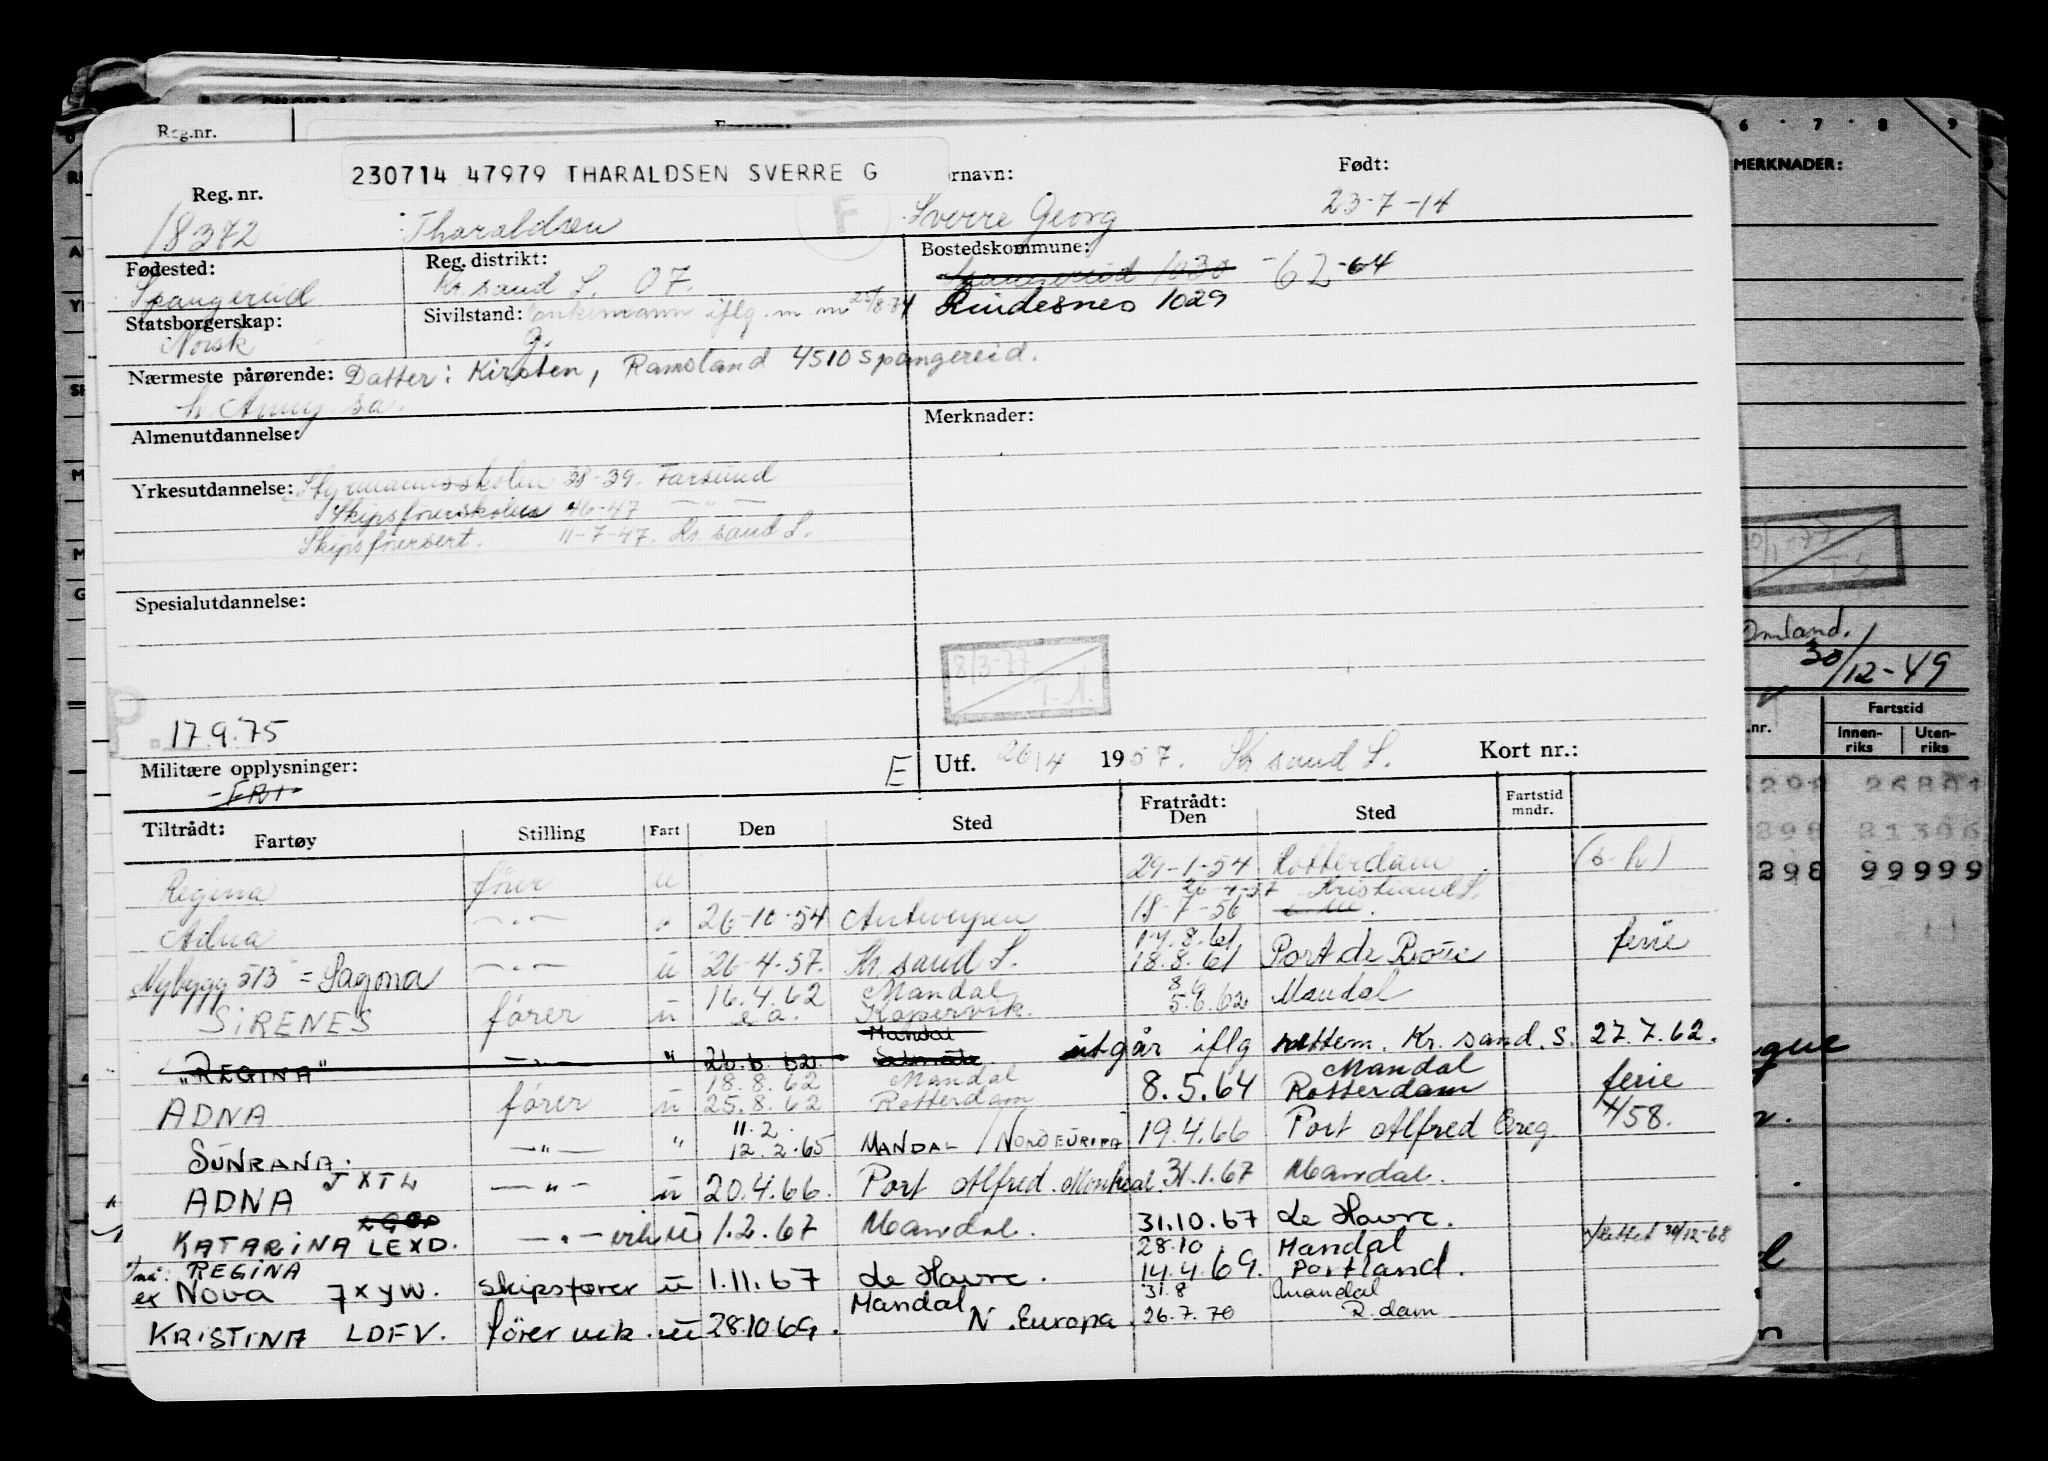 Reg.nr.
230714 47979 THARALDSEN SVERRE G
Reg. nr. rnavn: Født:
18372 Tharaldsen Sverre Georg 23-7-14
F
Fødested: Reg. distrikt: Bostedskommune:
Spangereid Kr. sand S. 07. Spangereid 1030 -62-64
Statsborgerskap: Sivilstand: Enkemann iflg. m m 25/8-74 Lindesnes 1029
Norsk g.
Nærmeste pårørende: Datter: Kirsten, Ramsland 4510 Spangereid.
h. Anny sa.
Almenutdannelse: Merknader:
Yrkesutdannelse: Styrmannsskolen 38-39. Farsund
Skipsførerskolen 46-47 — " —
Skipsførersert. 11-7-47. Kr. sand S.
Spesialutdannelse:
8/3-77
T.S.
17.9.75
Militære opplysninger: E Utf. 26/4 1957. Kr. sand S. Kort nr.:
-FRI-
Tiltrådt: Fratrådt:
Fartøy Stilling Fart Den Sted Den Sted Fartstid mndr.
Regina fører u 29-1-54 Rotterdam (s.h)
26-4-57 Kristiansand S.
Adna — " — " 26-10-54 Antwerpen 18-7-56
17.8.61
Nybygg 513 = Sagona — " — u 26-4-57. Kr. sand S. 18.8.61 Port de Bouc ferie
16.4.62 Mandal 8.6
SIRENES fører u e.a. Kopervik. 5.6.62 Mandal
Mandal
"REGINA" — " — " 26.6.62. utgår iflg rettem. Kr. sand. S. 27.7.62.
18.8.62 Mandal Mandal
ADNA fører u 25.8.62 Rotterdam 8.5.64 Rotterdam ferie
11.2.
SUNRANA. — " — " 12.2.65 MANDAL / NORD EUROPA 19.4.66 Port Alfred Greg. 458.
ADNA JXTL — " — u 20.4.66. Port Alfred. Montreal. 31.1.67 Mandal.
KATARINA LEXD. — " — vik u 1.2.67 Mandal. 31.10.67 Le Havre.
28.10 Mandal 30/12-68
nå: REGINA
ex NOVA JXYW. skipsfører u 1.11.67 Le Havre. 14.4.69. Portland.
Mandal 31.8 Mandal
KRISTINA LDFV. fører vik. u 28.10.69. N. Europa. 26.7.70 R.dam
6 7 8 9
MERKNADER:
Omland.
30/12-49
.nr. Fartstid
Innenriks Utenriks
298
298
298 99999